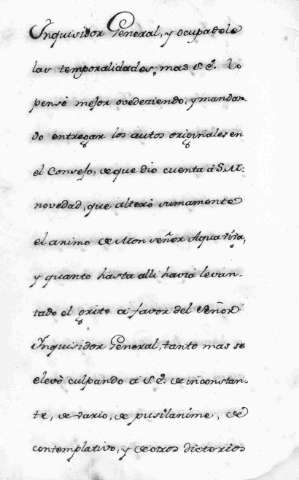 Inquisidor General, y ocupadole
las temporalidades, mas S.E. lo
penso mejor ovedeziendo, y mandan-
do entregar los autos originales en
el Consejo, de que dio cuenta á S.M.
novedad, que alteró sumamente
el animo de Monseñor Aquaviva,
y quanto hasta alli havia levan-
tado el grito a favor del Señor
Inquisidor General, tanto mas se
elevó culpando a S.E. de inconstan-
te, de vario, de pusilanime, de
contemplativo, y de otros dicterios